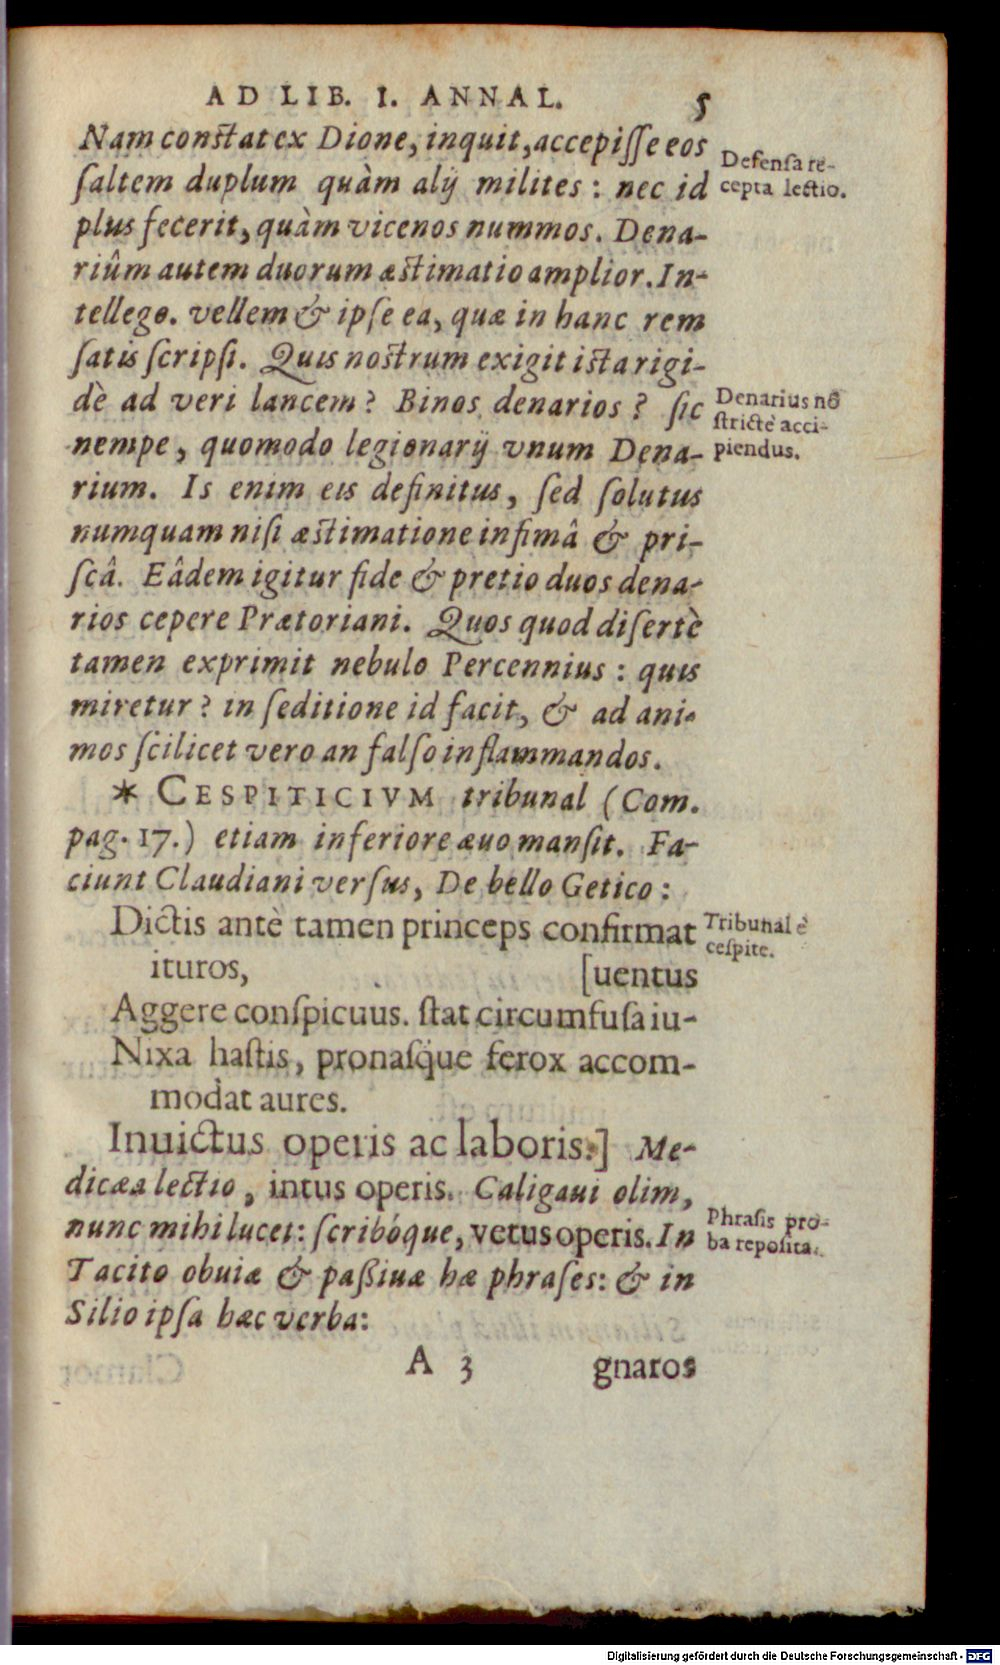 AD LIB. I. ANNAL. 5
Nam constat ex Dione, inquit, accepiſſe eos
ſaltem duplum quàm alij milites: nec id
plus fecerit, quàm vicenos nummos. Dena-
riûm autem duorum æstimatio amplior. In-
tellego. vellem & ipſe ea, quæ in hanc rem
ſatis ſcripſi. Quis nostrum exigit ista rigi-
dè ad veri lancem? Binos denarios? ſic
nempe, quomodo legionarij vnum Dena-
rium. Is enim eis definitus, ſed ſolutus
numquam niſi æstimatione infimâ & pri-
ſcâ. Eâdem igitur fide & pretio duos dena-
rios cepere Prætoriani. Quos quod diſertè
tamen exprimit nebulo Percennius: quis
miretur? in ſeditione id facit, & ad ani-
mos ſcilicet vero an falſo inflammandos.
* CESPITICIVM tribunal (Com.
pag. 17.) etiam inferiore æuo manſit. Fa-
ciunt Claudiani verſus, De bello Getico:
Dictis antè tamen princeps confirmat
ituros, [uentus
Aggere conſpicuus. ſtat circumfuſa iu-
Nixa haſtis, pronaſq́ue ferox accom-
modat aures.
Inuictus operis ac laboris.] Me-
dicæa lectio, intus operis. Caligaui olim,
nunc mihi lucet: ſcribóque, vetus operis. In
Tacito obuiæ & paßiuæ hæ phraſes: & in
Silio ipſa hæc verba:
A 3 gnaros
Defenſa re-
cepta lectio.
Denarius nō
ſtrictè acci-
piendus.
Tribunal è
ceſpite.
Phraſis pro-
ba repoſita.
Digitalisierung gefördert durch die Deutsche Forschungsgemeinschaft - DFG